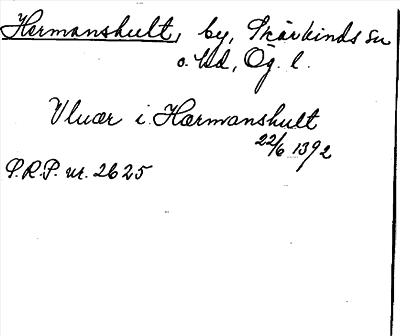 Hermanshult, by, Skärkinds sn
o. hd, Ög. l.
Vluær i Hærmanshult
22/6 1392
P.R.P. nr. 2625